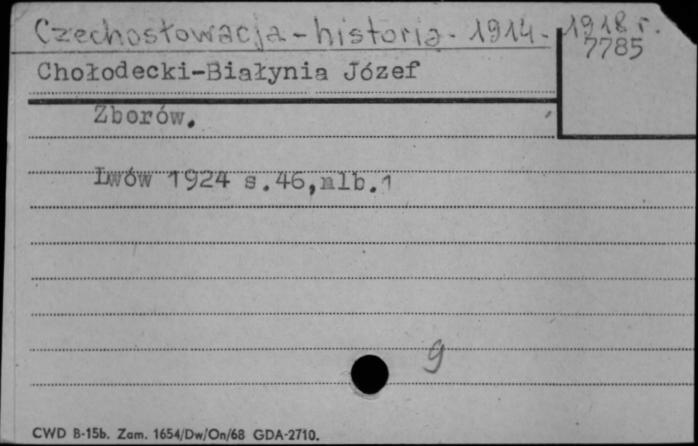 Czechosłowacja - historia - 1914 - 1918 r.
7785
Chołodecki-Białynia Józef
Zborów.
Lwów 1924 s.46,nlb.1
9
CWD B-15b. Zam. 1654/Dw/On/68 GDA-2710.